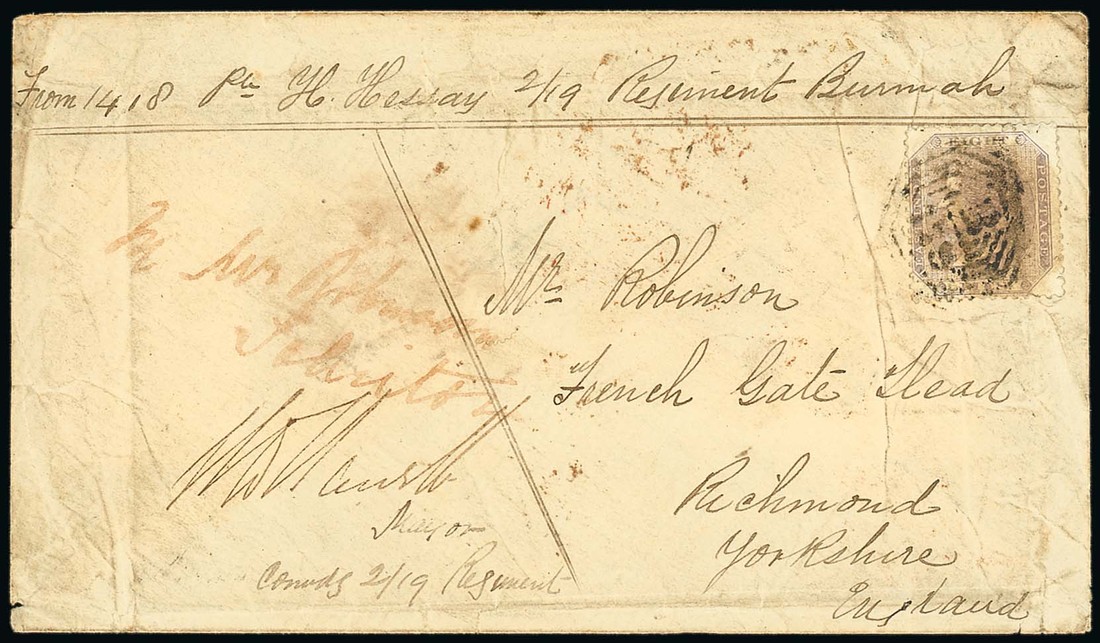 From 1418 Pte H. Hessay 2/19 Regiment Burmah
EIGHT
POSTAGE
Mr Robinson
French Gate Head
Richmond
Yorkshire
England
Mrs Robinson
Major
Comdg 2/19 Regiment